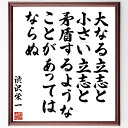 大なる立志と
小さい立志と
矛盾するような
ことがあっては
ならぬ
渋沢栄一